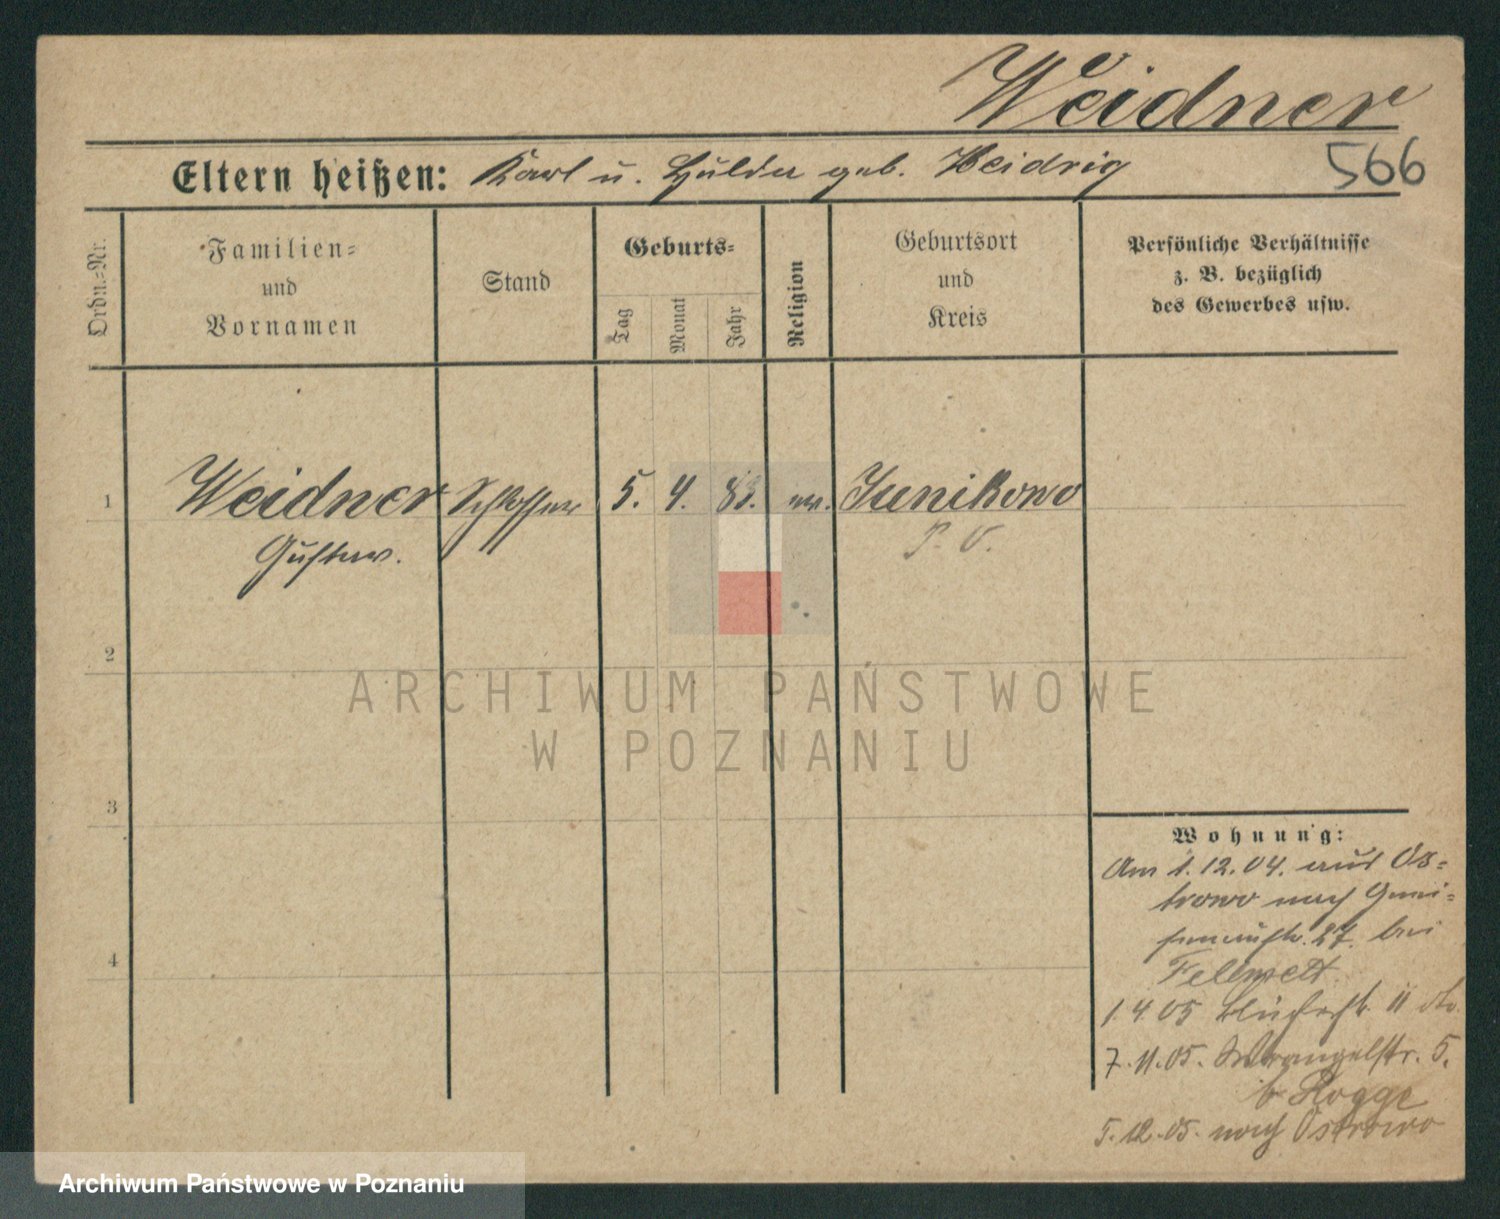 Weidner
566
Eltern heißen: Karl u. Hulda geb. Heidrig
Ordn.-Nr.
Familien-
und
Vornamen
Stand
Geburts-
Tag
Monat
Jahr
Religion
Geburtsort
und
Kreis
Persönliche Verhältnisse
z. B. bezüglich
des Gewerbes usw.
1 Weidner Schlosser 5. 4. 83. ev. Junikowo
Gustav. P. O.
2
ARCHIWUM PAŃSTWOWE
W POZNANIU
3
Wohnung:
Am 1.12.04. aus Os-
trowo nach Gnei-
senaustr. 27. bei
1.4.05 11
7.11.05. Wrangelstr. 5.
b Rogge
5.12.05. nach Ostrowo
4
Archiwum Państwowe w Poznaniu